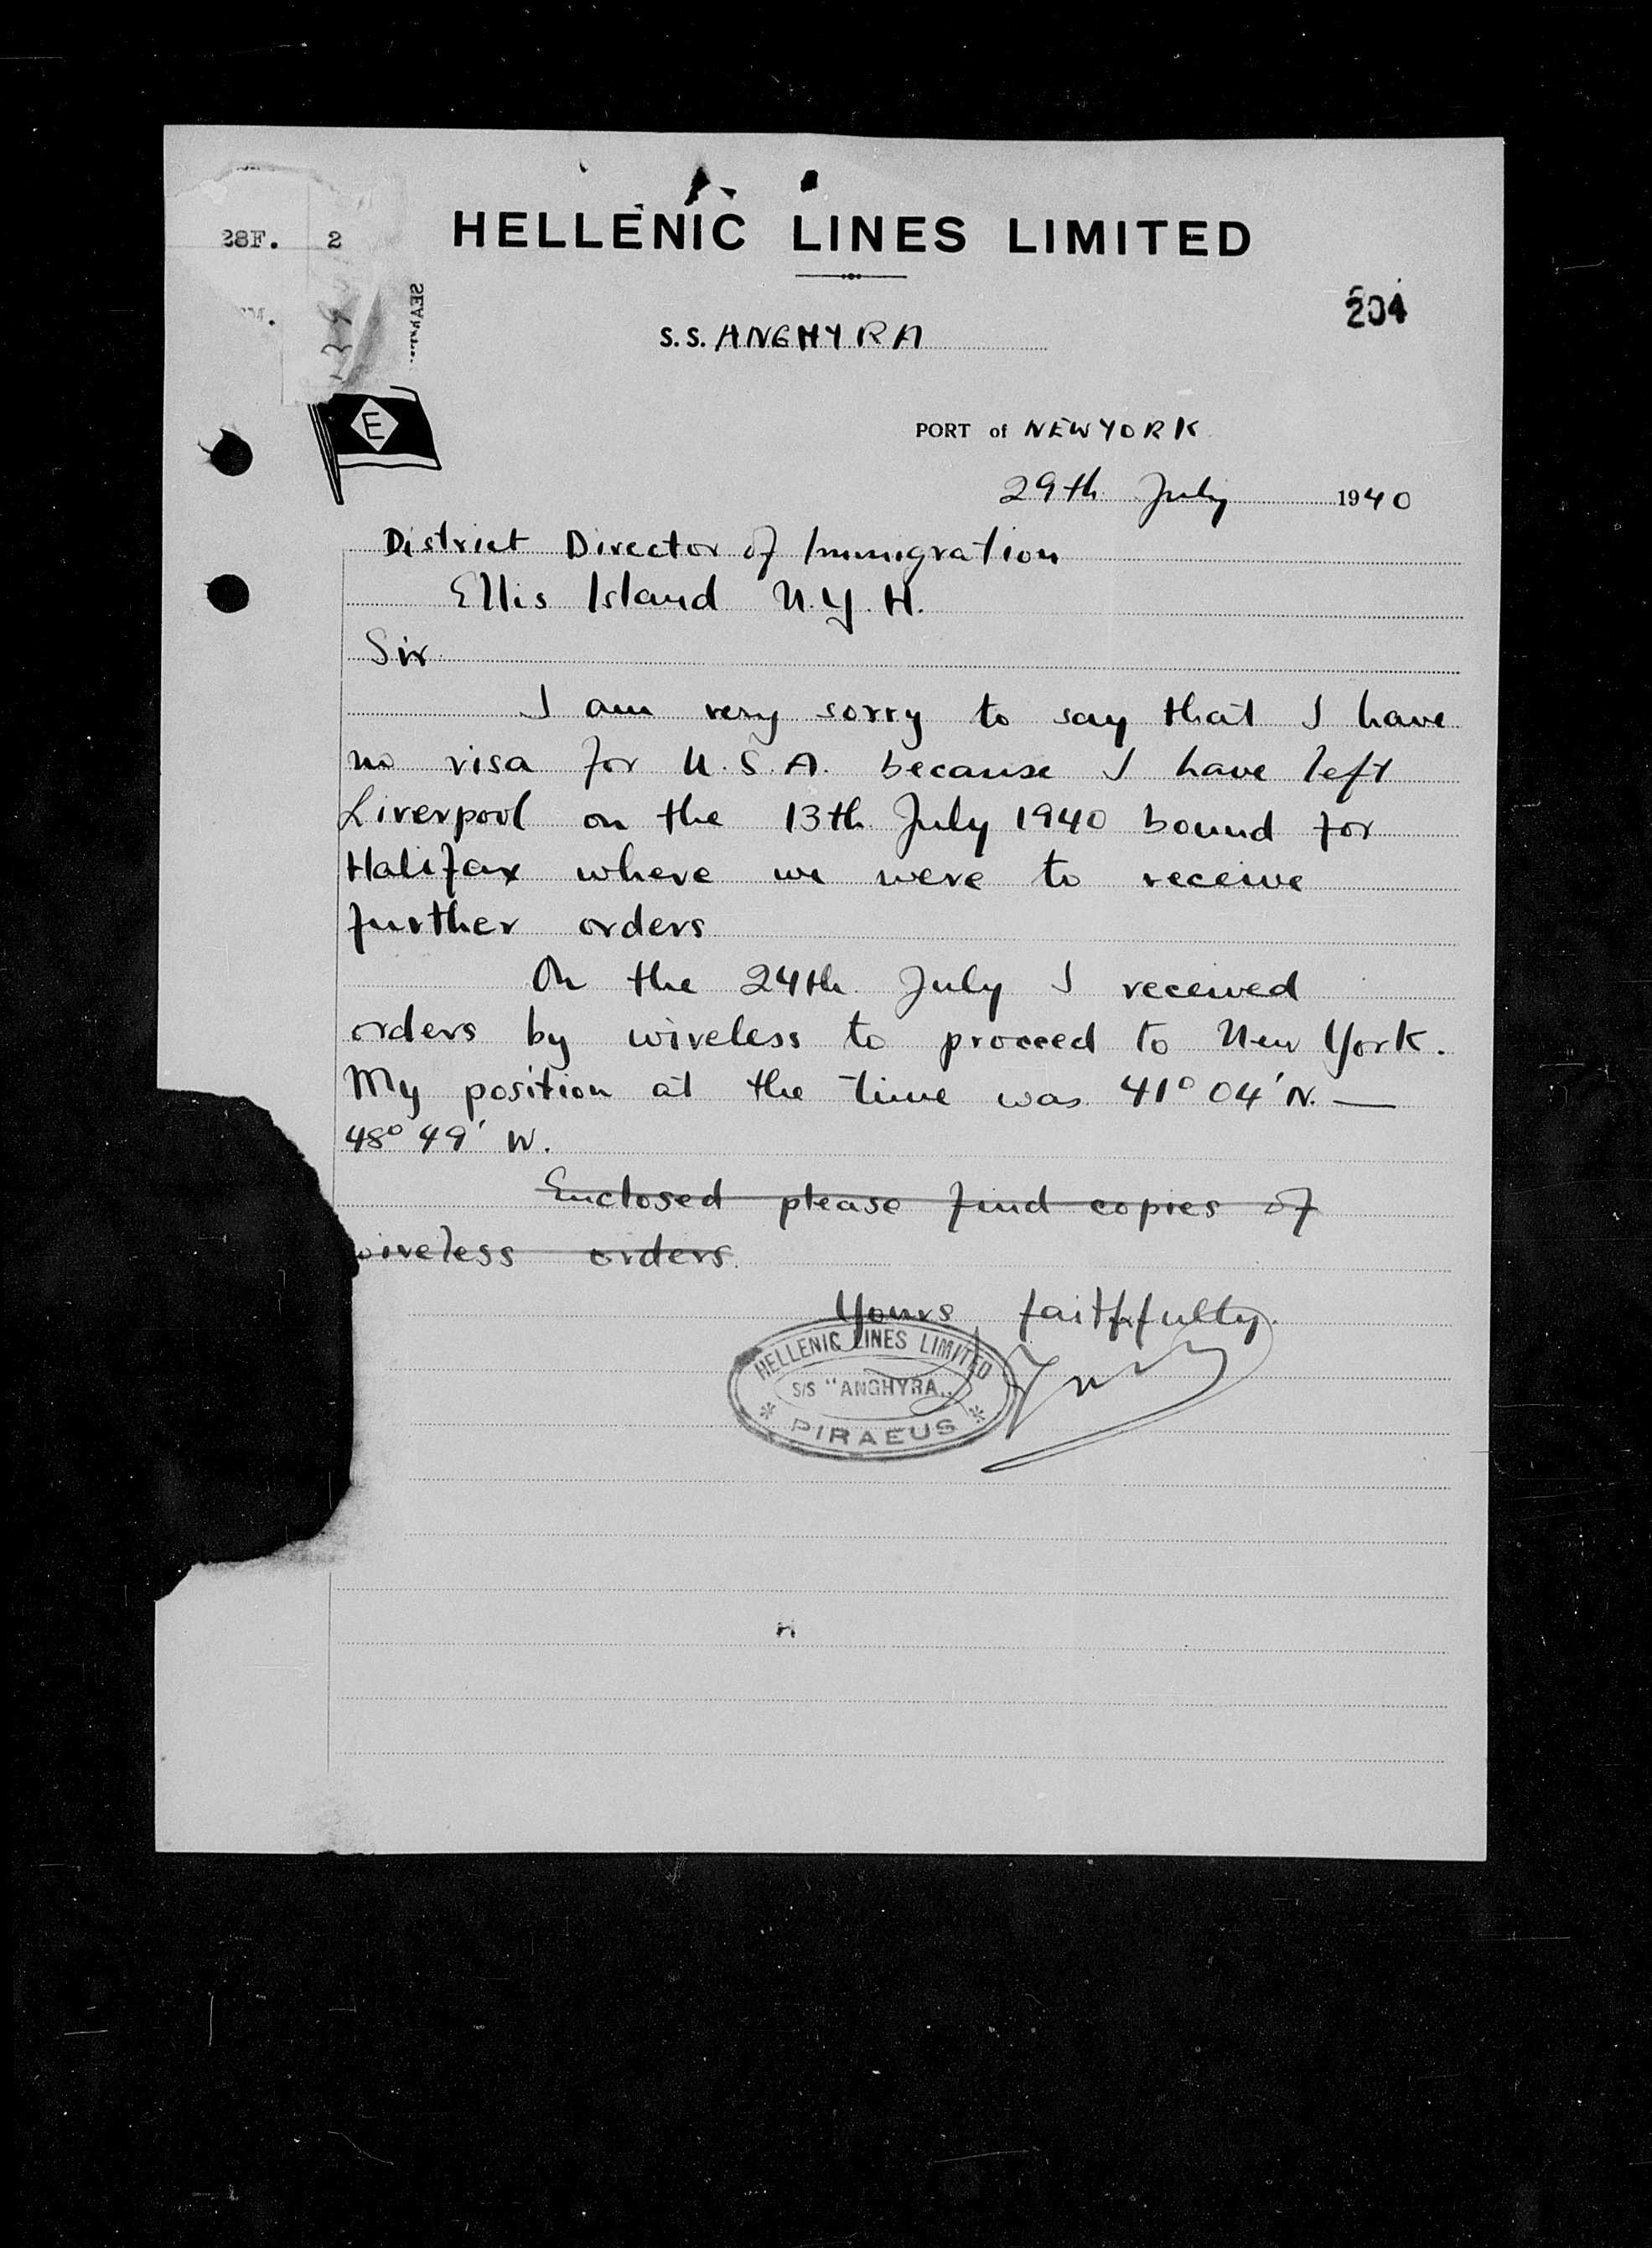 28F. 2
HELLENIC LINES LIMITED
204
S.S. ANGHYRA
E
PORT of NEW YORK
29th July 1940
District Director of Immigration
Ellis Island N.Y.H.
Sir
I am very sorry to say that I have
no visa for U.S.A. because I have left
Liverpool on the 13th July 1940 bound for
Halifax where we were to receive
further orders
On the 24th July I received
orders by wireless to proceed to New York.
My position at the time was 41° 04' N. —
48° 49' W.
Enclosed please find copies of
wireless orders.
Yours faithfully.
HELLENIC LINES LIMITED
S/S "ANGHYRA"
* PIRAEUS *
H